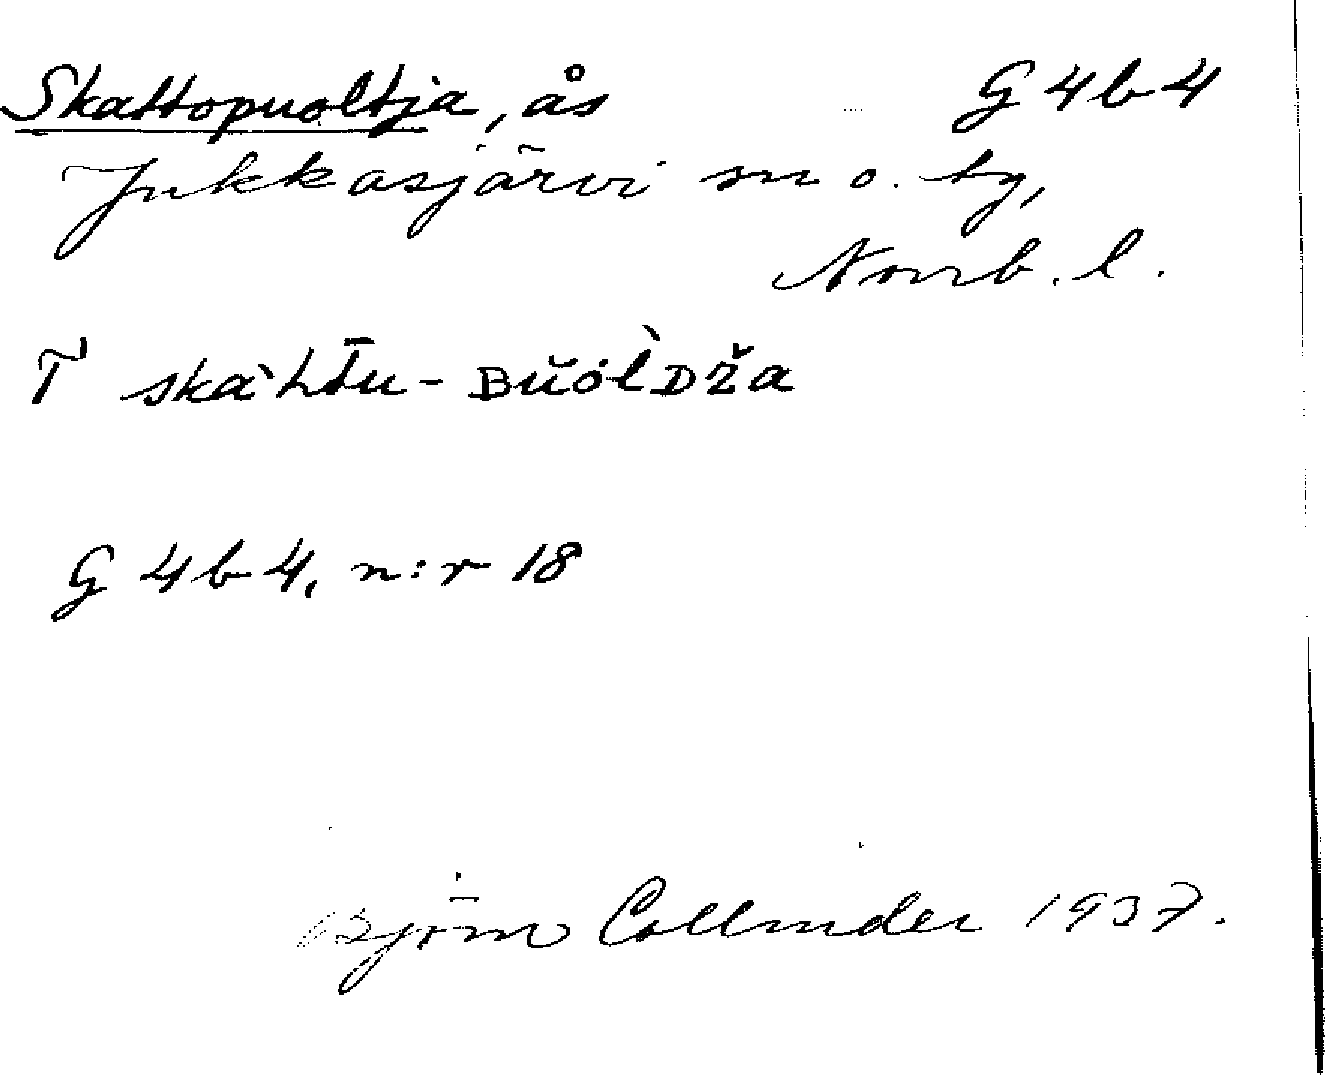 Skattopuoltja, ås G 4 b 4
Jukkasjärvi sn o. by,
Norrb. l.
T skàht̄u - ʙŭȯl̀ᴅža
G 4 b 4, n:r 18
Björn Collinder 1937.